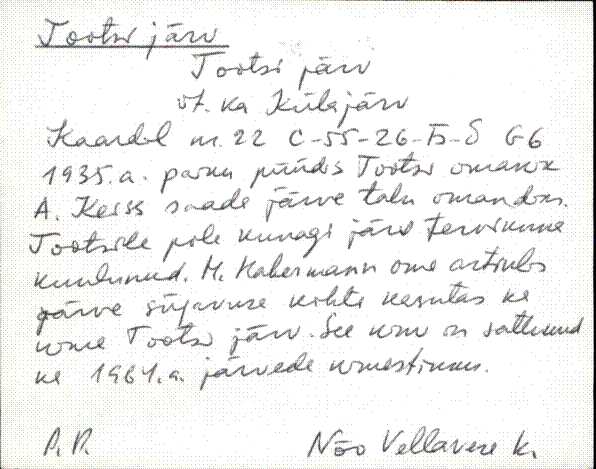 Tootsi järv
Tootsi järv
vt. ka Külajärv
Kaardil nr. 22 C-55-26-Б-δ G6
1935. a. paiku püüdis Tootsi omanik
A. Keiss saada järve talu omandiks.
Tootsile pole kunagi järv tervikuna
kuulunud. H. Habermann oma artiklis
järve sügavuse kohta kasutas ka
nime Tootsi järv. See nimi on sattunud
ka 1964. a. järvede nimestikku.
Nõo Vellavere k.